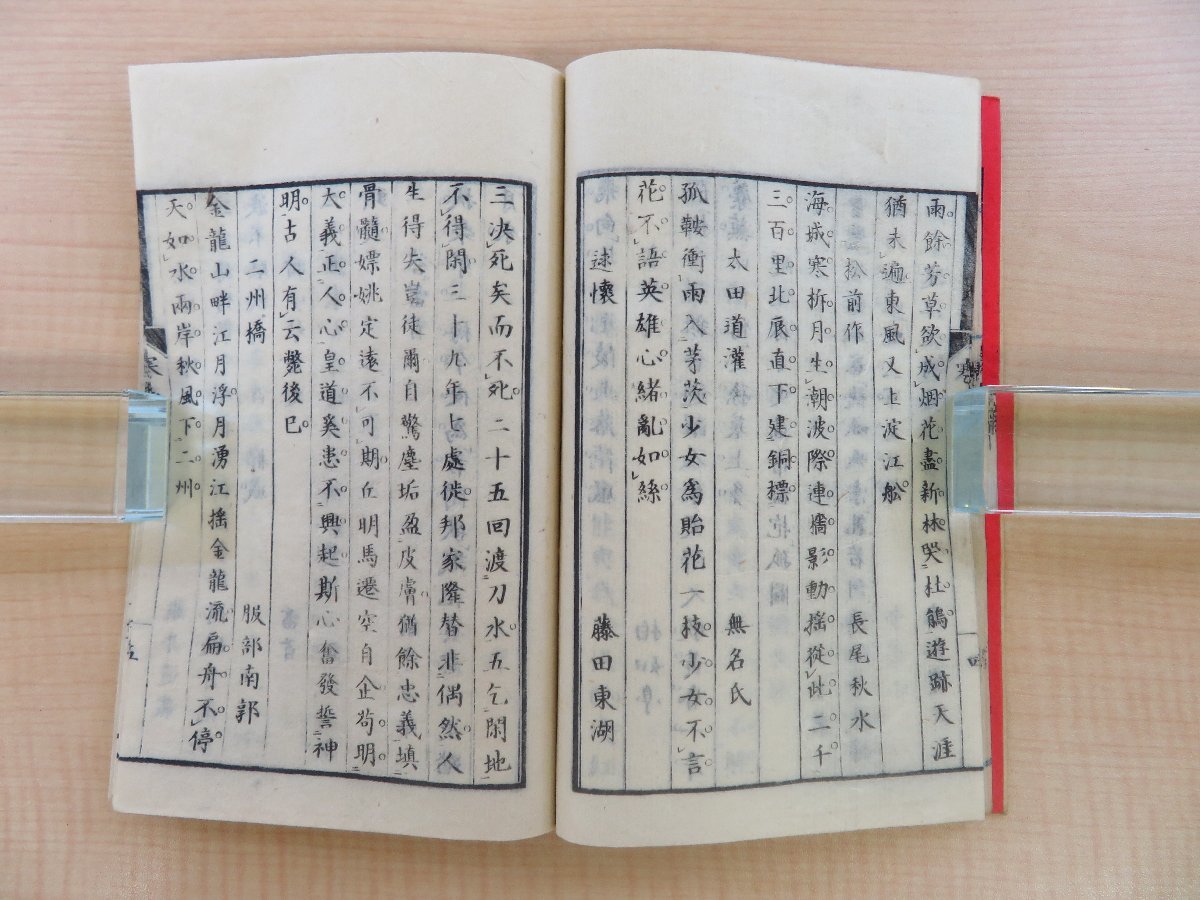 雨餘芳草欲成烟花盡新林哭杜鵑遊跡天涯
猶未遍東風又上淀江船
松前作 長尾秋水
海城寒柝月生朝波際連檣影動搖從此二千
三百里北辰直下建銅標
太田道灌 無名氏
孤鞍衝雨入茅茨少女為貽花一枝少女不言
花不語英雄心緒亂如絲
述懷 藤田東湖
三決死矣而不死二十五回渡刀水五乞閑地
不得閑三十九年七處徙邦家隆替非偶然人
生得失豈徒爾自驚塵垢盈皮膚猶餘忠義填
骨髓嫖姚定遠不可期丘明馬遷空自企苟明
大義正人心皇道奚患不興起斯心奮發誓神
明古人有云斃後已
二州橋 服部南郭
金龍山畔江月浮月湧江搖金龍流扁舟不停
天如水兩岸秋風下二州